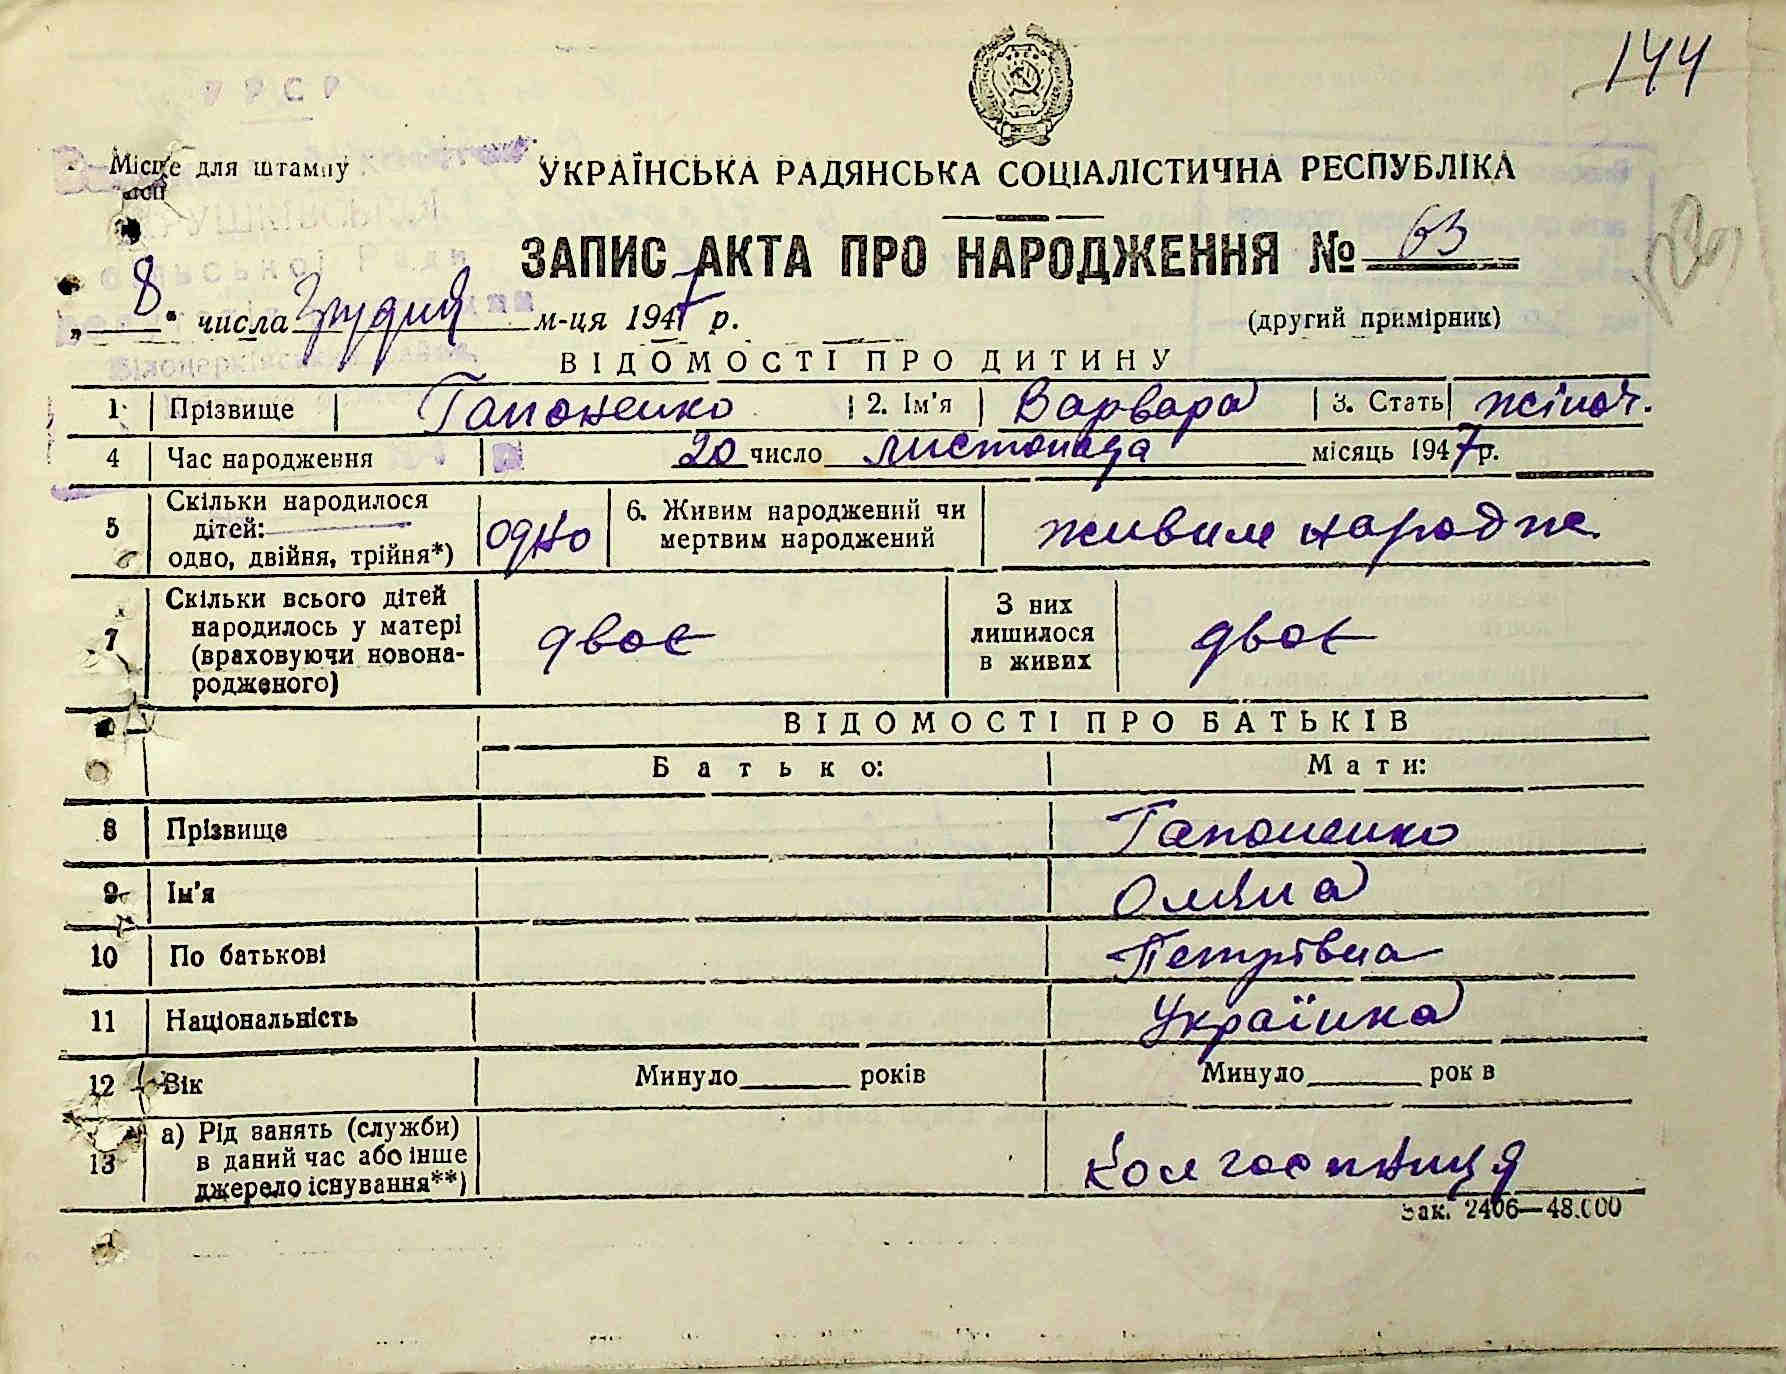 144
У Р С Р
Місце для штампу
УКРАЇНСЬКА РАДЯНСЬКА СОЦІАЛІСТИЧНА РЕСПУБЛІКА
ЗАПИС АКТА ПРО НАРОДЖЕННЯ № 63
сільської Ради
„8“ числа Грудня м-ця 1947 р.
(другий примірник)
ВІДОМОСТІ ПРО ДИТИНУ
1 Прізвище Гапоненко 2. Ім'я Варвара 3. Стать жіноч.
4 Час народження 20 число листопада місяць 1947 р.
5 Скільки народилося дітей: одно, двійня, трійня*) одно 6. Живим народжений чи мертвим народжений живим народже.
7 Скільки всього дітей народилось у матері (враховуючи новонародженого) двоє З них лишилося в живих двоє
ВІДОМОСТІ ПРО БАТЬКІВ
Батько: Мати:
8 Прізвище Гапоненко
9 Ім'я
10 По батькові Петрівна
11 Національність Українка
12 Вік Минуло років Минуло рок в
13 а) Рід занять (служби) в даний час або інше джерело існування**) Колгоспниця
Зак. 2406—48.000